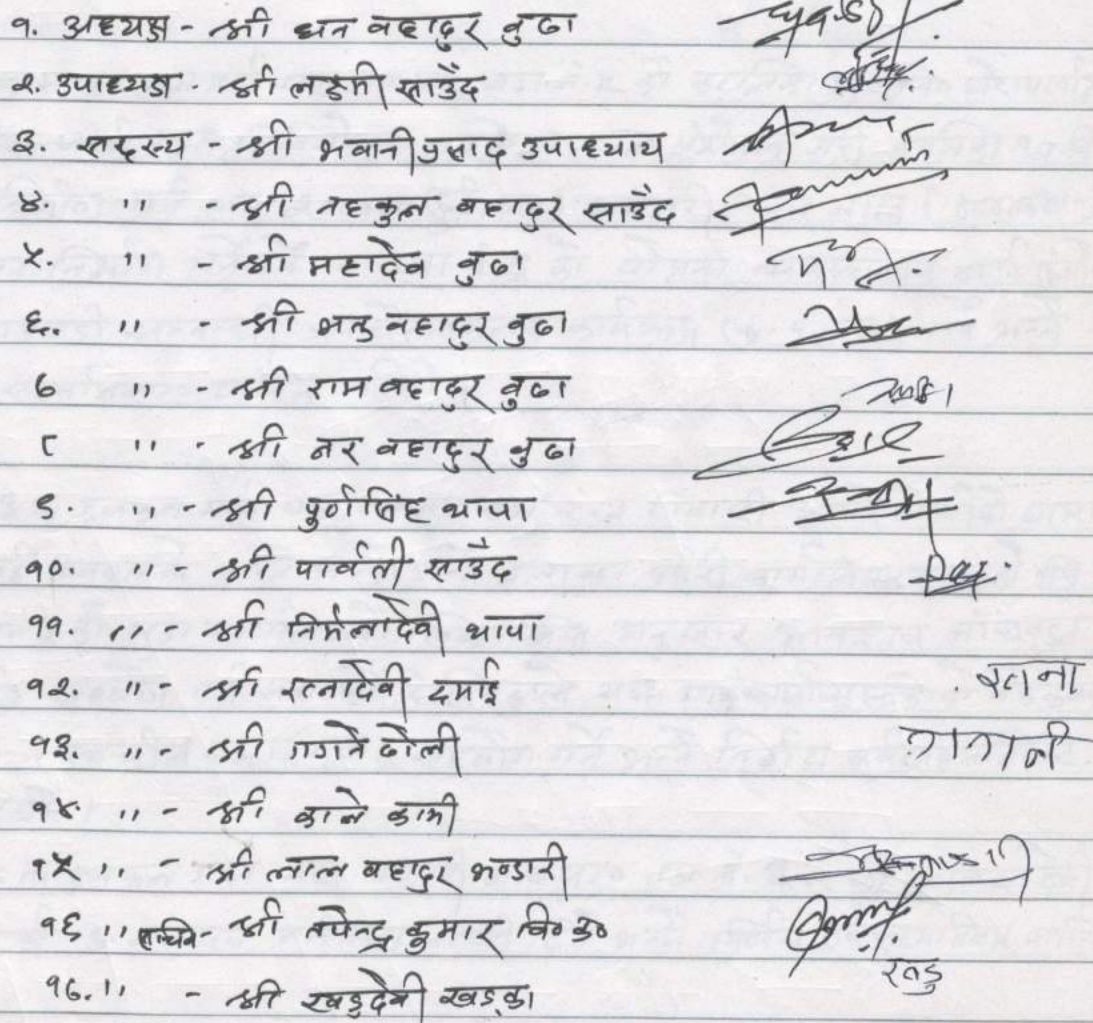 १. अध्यक्ष - श्री धन बहादुर बुढा
२. उपाध्यक्ष - श्री लक्ष्मी साउँद
३. सदस्य - श्री भवानी प्रसाद उपाध्याय
४. " - श्री नहकुल बहादुर साउँद
५. " - श्री महादेव बुढा
६. " - श्री भतु बहादुर बुढा
७ " - श्री राम बहादुर बुढा
८ " - श्री नर बहादुर बुढा
९ " - श्री पुर्णसिंह थापा
१० " - श्री पार्वती साउँद
११. " - श्री निर्मलादेवी थापा
१२. " - श्री रत्नादेवी दमाई रतना
१३. " - श्री गगने ढोली
१४ " - श्री काले कामी
१५ " - श्री लाल बहादुर भण्डारी
१६ " सचिव श्री नपेन्द्र कुमार वि० क०
१७. " - श्री खड्डदेवी खड्का